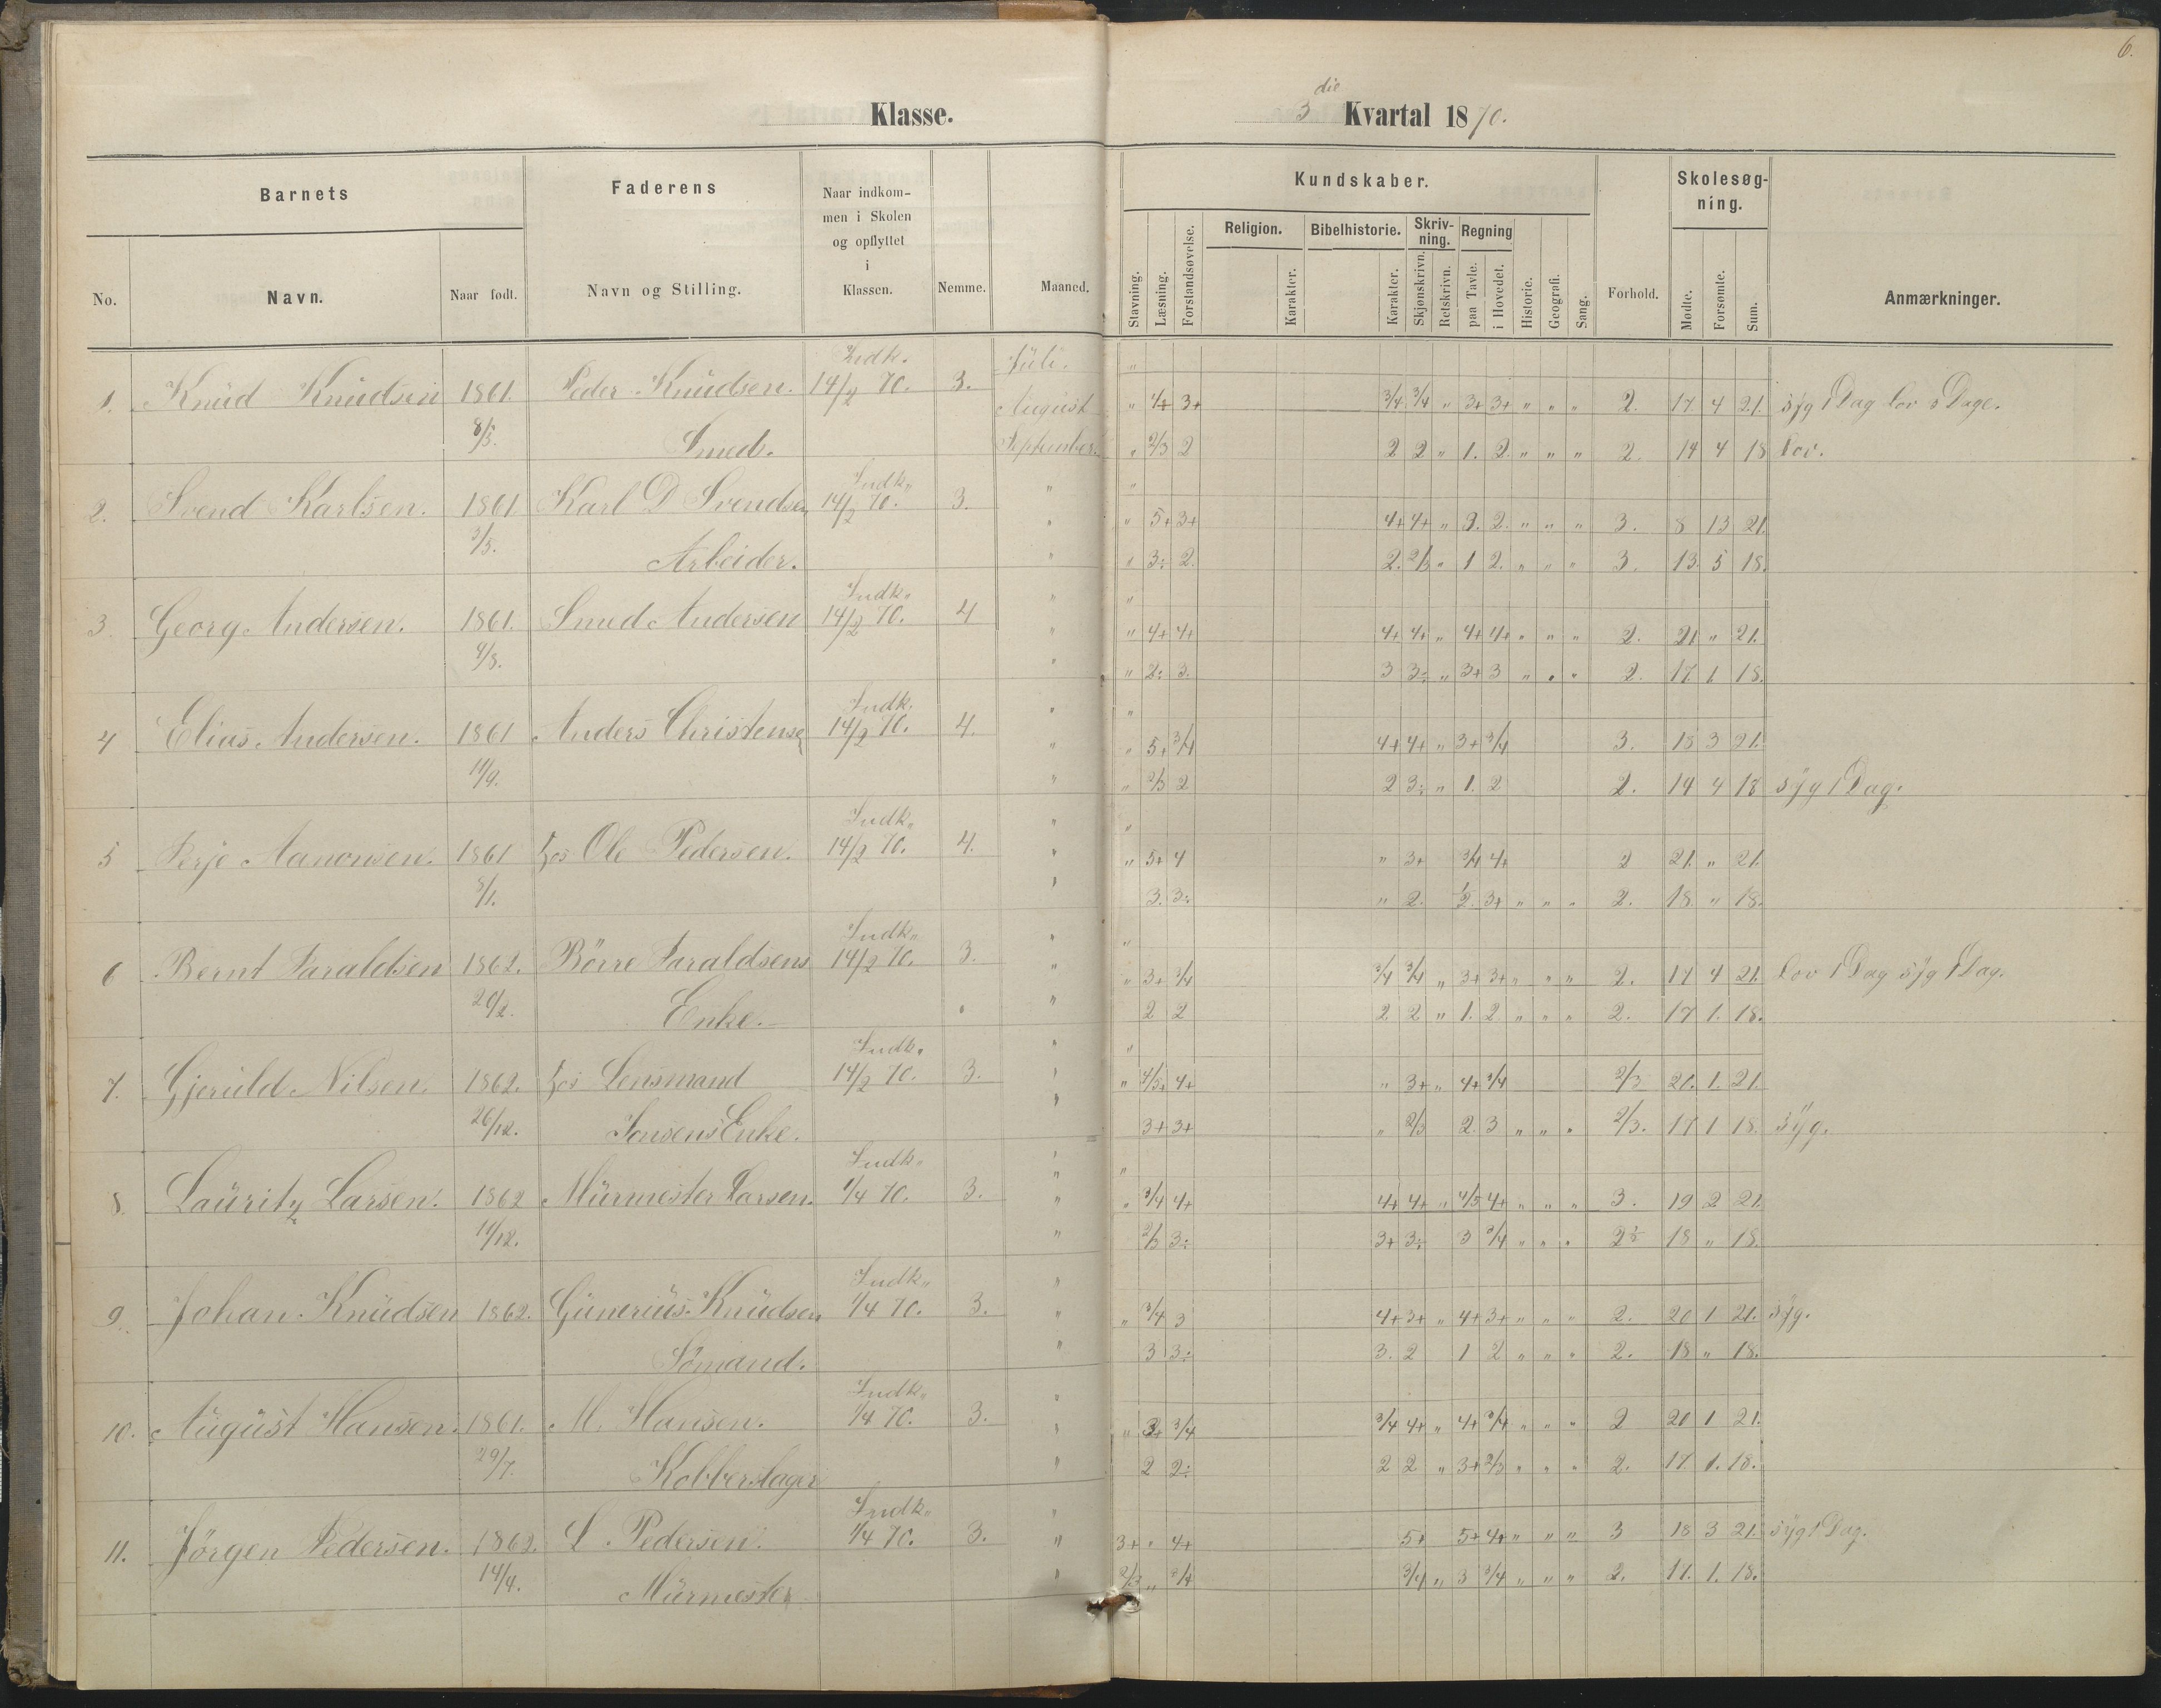 6.
Klasse.
3die Kvartal 1870.
Barnets
Faderens
Naar indkommen i Skolen og opflyttet i Klassen.
Nemme.
Maaned.
Kundskaber.
Forhold.
Skolesøgning.
Anmærkninger.
No.
Navn.
Naar født.
Navn og Stilling.
Stavning. Læsning. Forstandsøvelse. Religion. Karakter. Bibelhistorie. Karakter. Skrivning. Skjønskrivn. Retskrivn. Regning paa Tavle. i Hovedet. Historie. Geografi. Sang.
Mødte. Forsømte. Sum.
Indk. Juli. "
1. Knud Knudsen 1861. Peder Knudsen. 14/2 70. 3. August " 3+ 3/4 3/4 " 3+ 3+ " " " 2. 17 4 21. syg 1 Dag lov 3 Dage.
Smed. September. " 2/3 2 2 2 " 1. 2. " " " 2. 14 4 18 lov.
Indk. " "
2. Svend Karlsen. 1861 Karl D Svendsen 14/2 70. 3. " " 5+ 3+ 4+ 4+ " 3. 2. " " " 3. 8 13 21.
3/5. Arbeider. " " 3÷ 2. 2. 2/3 " 1 2. " " " 3. 13. 5 18.
Indk. " "
3. Georg Andersen. 1861. Smed Andersen 14/2 70. 4 " " 4+ 4+ 4+ 4+ " 4+ 4+ " " " 2. 21 " 21.
" " 2÷ 3. 3 3÷ " 3+ 3 " " " 2. 17 1 18.
Indk. " "
4 Elias Andersen. 1861 Anders Christensen 14/2 70. 4. " " 5+ 3/4 4+ 4+ " 3+ 3/4 3. 18 3 21.
11/9. " " 2/3 2 2 3÷ " 1. 2 2. 14 4 18 syg 1 Dag.
Indk. " "
5 Terje Aanonsen. 1861 hos Ole Pedersen. 14/2 70. 4. " " 5+ 4 " 3+ 3/4 4+ 2 21. " 21
8/1. " 3. 3÷ " 2. 1/2. 3+ " " " 2. 18. " 18.
Indk. " "
6 Bernt Taraldsen 1862. Börre Taraldsens 14/2 70. 3. " " 3+ 3/4 3/4 3/4 " 3+ 3+ " " " 2. 17 4 21. lov 1 Dag syg 1 Dag.
20/2. Enke. " 2 2 2 2 " 1. 2. " " " 2. 17 1. 18.
Indk. " "
7. Gjeruld Nilsen. 1862. hos Lensmand 14/2 70. 3. " " 4/5+ 4+ " 3+ " 4+ 3/4 2/3 20. 1. 21.
26/12. Jensens Enke. " 3+ 3+ " 2/3 2. 3 " " " 2/3. 17 1 18. syg.
Indk. " "
8. Lauritz Larsen. 1862 Murmester Larsen. 1/4 70. 3. " " 3/4 4+ 4+ 4+ " 4/5 4+ " " " 3. 19 2 21.
11/12. " 2/3 3÷ 3+ 3÷ 3 3/4 " " " 18 " 18.
Indk. "
9. Johan Knudsen 1862. Gunerius Knudsen 1/4 70. 3. " " 3/4 3 4+ 3+ " 4+ 3+ " " " 2. 20 1 21. syg.
Sömand. " 3 3÷ 3. 2 1 2 " " " 2. 18 " 18.
Indk. "
10. August Hansen. 1861. M. Hansen. 1/4 70. 3. " " 3+ 3/4 3/4 4+ " 4+ 3/4 " " " 2 20 1 21.
29/7. Kobberslager " 2 2÷ 2 2 " 3+ 2/3 " " " 2. 17. 1. 18.
Indk. "
11. Jörgen Pedersen. 1862. L. Pedersen. 1/4 70. 3. " 3+ " 4+ 5+ 5+ 4+ " " " 3 18 3 21. syg 1 Dag.
14/4. Murmester " 2/3 " 3/4 3/4 " 3 3/4 " " " 2. 17. 1. 18.